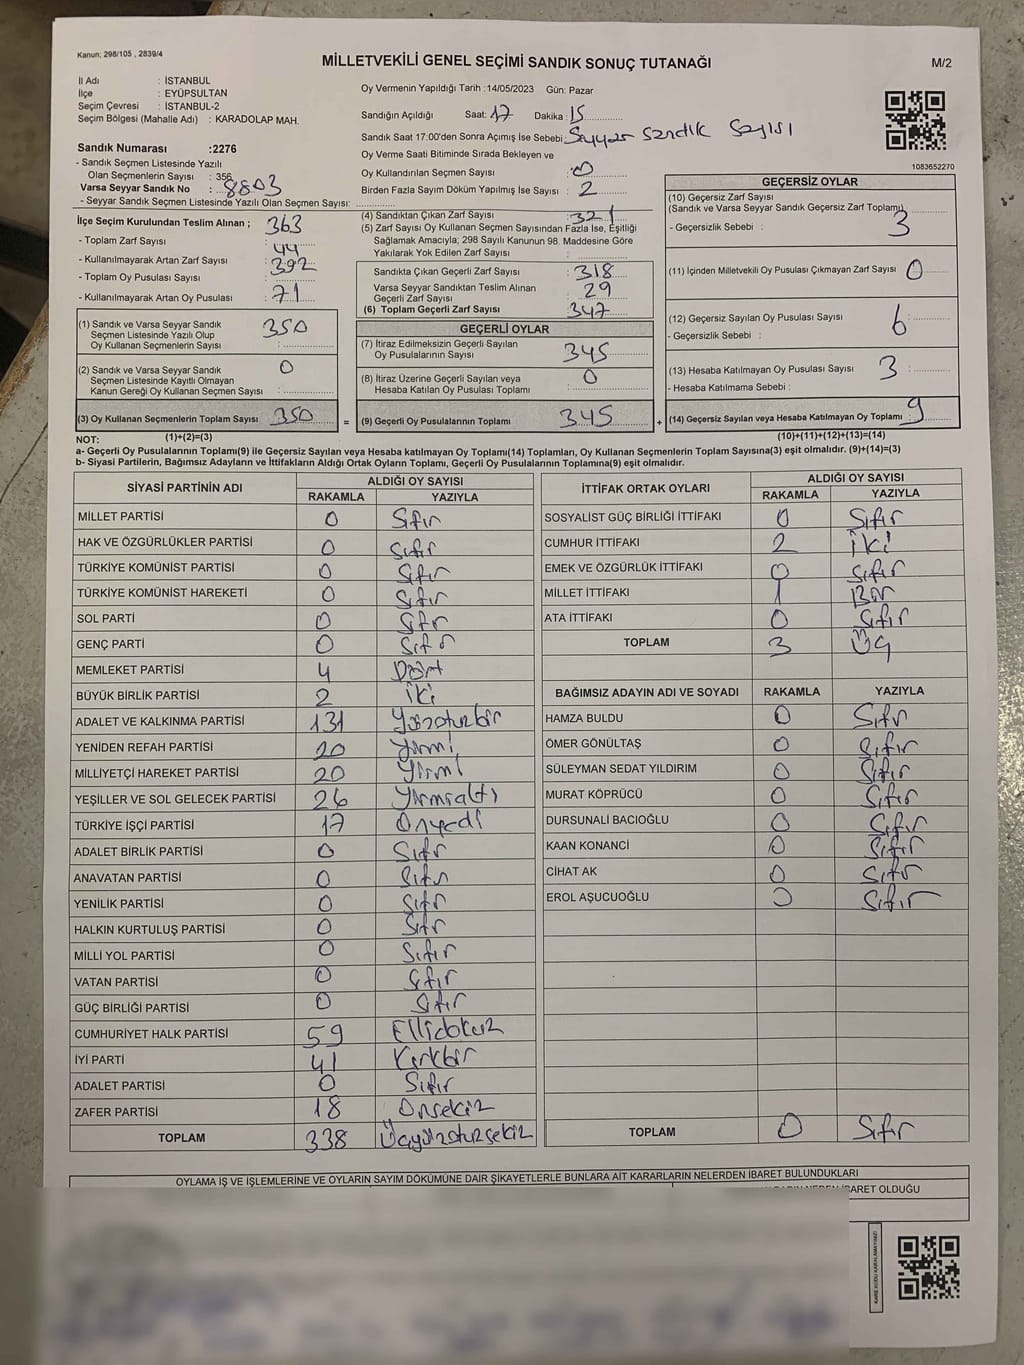 Kanun; 298/105 , 2839/4
MİLLETVEKİLİ GENEL SEÇİMİ SANDIK SONUÇ TUTANAĞI
M/2
İl Adı : İSTANBUL
İlçe : EYÜPSULTAN
Seçim Çevresi : İSTANBUL-2
Seçim Bölgesi (Mahalle Adı) : KARADOLAP MAH.
Sandık Numarası :2276
- Sandık Seçmen Listesinde Yazılı
Olan Seçmenlerin Sayısı : 356
Varsa Seyyar Sandık No : 8803
- Seyyar Sandık Seçmen Listesinde Yazılı Olan Seçmen Sayısı:
Oy Vermenin Yapıldığı Tarih :14/05/2023 Gün: Pazar
Sandığın Açıldığı Saat: 17 Dakika : 15
Sandık Saat 17:00'den Sonra Açımış İse Sebebi: Seyyar Sandık Sayısı
Oy Verme Saati Bitiminde Sırada Bekleyen ve
Oy Kullandırılan Seçmen Sayısı : 0
Birden Fazla Sayım Döküm Yapılmış İse Sayısı : 2
1083652270
İlçe Seçim Kurulundan Teslim Alınan ; 363
- Toplam Zarf Sayısı
- Kullanılmayarak Artan Zarf Sayısı : 44
- Toplam Oy Pusulası Sayısı : 392
- Kullanılmayarak Artan Oy Pusulası : 71
(1) Sandık ve Varsa Seyyar Sandık
Seçmen Listesinde Yazılı Olup
Oy Kullanan Seçmenlerin Sayısı : 350
(2) Sandık ve Varsa Seyyar Sandık
Seçmen Listesinde Kayıtlı Olmayan
Kanun Gereği Oy Kullanan Seçmen Sayısı : 0
(3) Oy Kullanan Seçmenlerin Toplam Sayısı : 350 =
(1)+(2)=(3)
(4) Sandıktan Çıkan Zarf Sayısı : 321
(5) Zarf Sayısı Oy Kullanan Seçmen Sayısından Fazla İse, Eşitliği
Sağlamak Amacıyla; 298 Sayılı Kanunun 98. Maddesine Göre
Yakılarak Yok Edilen Zarf Sayısı : 0
Sandıkta Çıkan Geçerli Zarf Sayısı : 318
Varsa Seyyar Sandıktan Teslim Alınan
Geçerli Zarf Sayısı : 29
(6) Toplam Geçerli Zarf Sayısı : 347
GEÇERLİ OYLAR
(7) İtiraz Edilmeksizin Geçerli Sayılan
Oy Pusulalarının Sayısı : 345
(8) İtiraz Üzerine Geçerli Sayılan veya
Hesaba Katılan Oy Pusulası Toplamı : 0
(9) Geçerli Oy Pusulalarının Toplamı : 345 +
GEÇERSİZ OYLAR
(10) Geçersiz Zarf Sayısı
(Sandık ve Varsa Seyyar Sandık Geçersiz Zarf Toplamı) : 3
- Geçersizlik Sebebi :
(11) İçinden Milletvekili Oy Pusulası Çıkmayan Zarf Sayısı : 0
(12) Geçersiz Sayılan Oy Pusulası Sayısı : 6
- Geçersizlik Sebebi :
(13) Hesaba Katılmayan Oy Pusulası Sayısı : 3
- Hesaba Katılmama Sebebi :
(14) Geçersiz Sayılan veya Hesaba Katılmayan Oy Toplamı : 9
(10)+(11)+(12)+(13)=(14)
NOT:
a- Geçerli Oy Pusulalarının Toplamı(9) ile Geçersiz Sayılan veya Hesaba katılmayan Oy Toplamı(14) Toplamları, Oy Kullanan Seçmenlerin Toplam Sayısına(3) eşit olmalıdır. (9)+(14)=(3)
b- Siyasi Partilerin, Bağımsız Adayların ve İttifakların Aldığı Ortak Oyların Toplamı, Geçerli Oy Pusulalarının Toplamına(9) eşit olmalıdır.
SİYASİ PARTİNİN ADI ALDIĞI OY SAYISI
RAKAMLA YAZIYLA
MİLLET PARTİSİ 0 Sıfır
HAK VE ÖZGÜRLÜKLER PARTİSİ 0 Sıfır
TÜRKİYE KOMÜNİST PARTİSİ 0 Sıfır
TÜRKİYE KOMÜNİST HAREKETİ 0 Sıfır
SOL PARTİ 0 Sıfır
GENÇ PARTİ 0 Sıfır
MEMLEKET PARTİSİ 4 Dört
BÜYÜK BİRLİK PARTİSİ 2 İki
ADALET VE KALKINMA PARTİSİ 131 Yüzotuzbir
YENİDEN REFAH PARTİSİ 20 Yirmi
MİLLİYETÇİ HAREKET PARTİSİ 20 Yirmi
YEŞİLLER VE SOL GELECEK PARTİSİ 26 Yirmialtı
TÜRKİYE İŞÇİ PARTİSİ 17 Onyedi
ADALET BİRLİK PARTİSİ 0 Sıfır
ANAVATAN PARTİSİ 0 Sıfır
YENİLİK PARTİSİ 0 Sıfır
HALKIN KURTULUŞ PARTİSİ 0 Sıfır
MİLLİ YOL PARTİSİ 0 Sıfır
VATAN PARTİSİ 0 Sıfır
GÜÇ BİRLİĞİ PARTİSİ 0 Sıfır
CUMHURİYET HALK PARTİSİ 59 Ellidokuz
İYİ PARTİ 41 Kırkbir
ADALET PARTİSİ 0 Sıfır
ZAFER PARTİSİ 18 Onsekiz
TOPLAM 338 Üçyüzotuzsekiz
İTTİFAK ORTAK OYLARI ALDIĞI OY SAYISI
RAKAMLA YAZIYLA
SOSYALİST GÜÇ BİRLİĞİ İTTİFAKI 0 Sıfır
CUMHUR İTTİFAKI 2 İki
EMEK VE ÖZGÜRLÜK İTTİFAKI 0 Sıfır
MİLLET İTTİFAKI 1 Bir
ATA İTTİFAKI 0 Sıfır
TOPLAM 3 Üç
BAĞIMSIZ ADAYIN ADI VE SOYADI RAKAMLA YAZIYLA
HAMZA BULDU 0 Sıfır
ÖMER GÖNÜLTAŞ 0 Sıfır
SÜLEYMAN SEDAT YILDIRIM 0 Sıfır
MURAT KÖPRÜCÜ 0 Sıfır
DURSUNALİ BACIOĞLU 0 Sıfır
KAAN KONANCİ 0 Sıfır
CİHAT AK 0 Sıfır
EROL AŞUCUOĞLU 0 Sıfır
TOPLAM 0 Sıfır
OYLAMA İŞ VE İŞLEMLERİNE VE OYLARIN SAYIM DÖKÜMÜNE DAİR ŞİKAYETLERLE BUNLARA AİT KARARLARIN NELERDEN İBARET BULUNDUKLARI
İBARET OLDUĞU